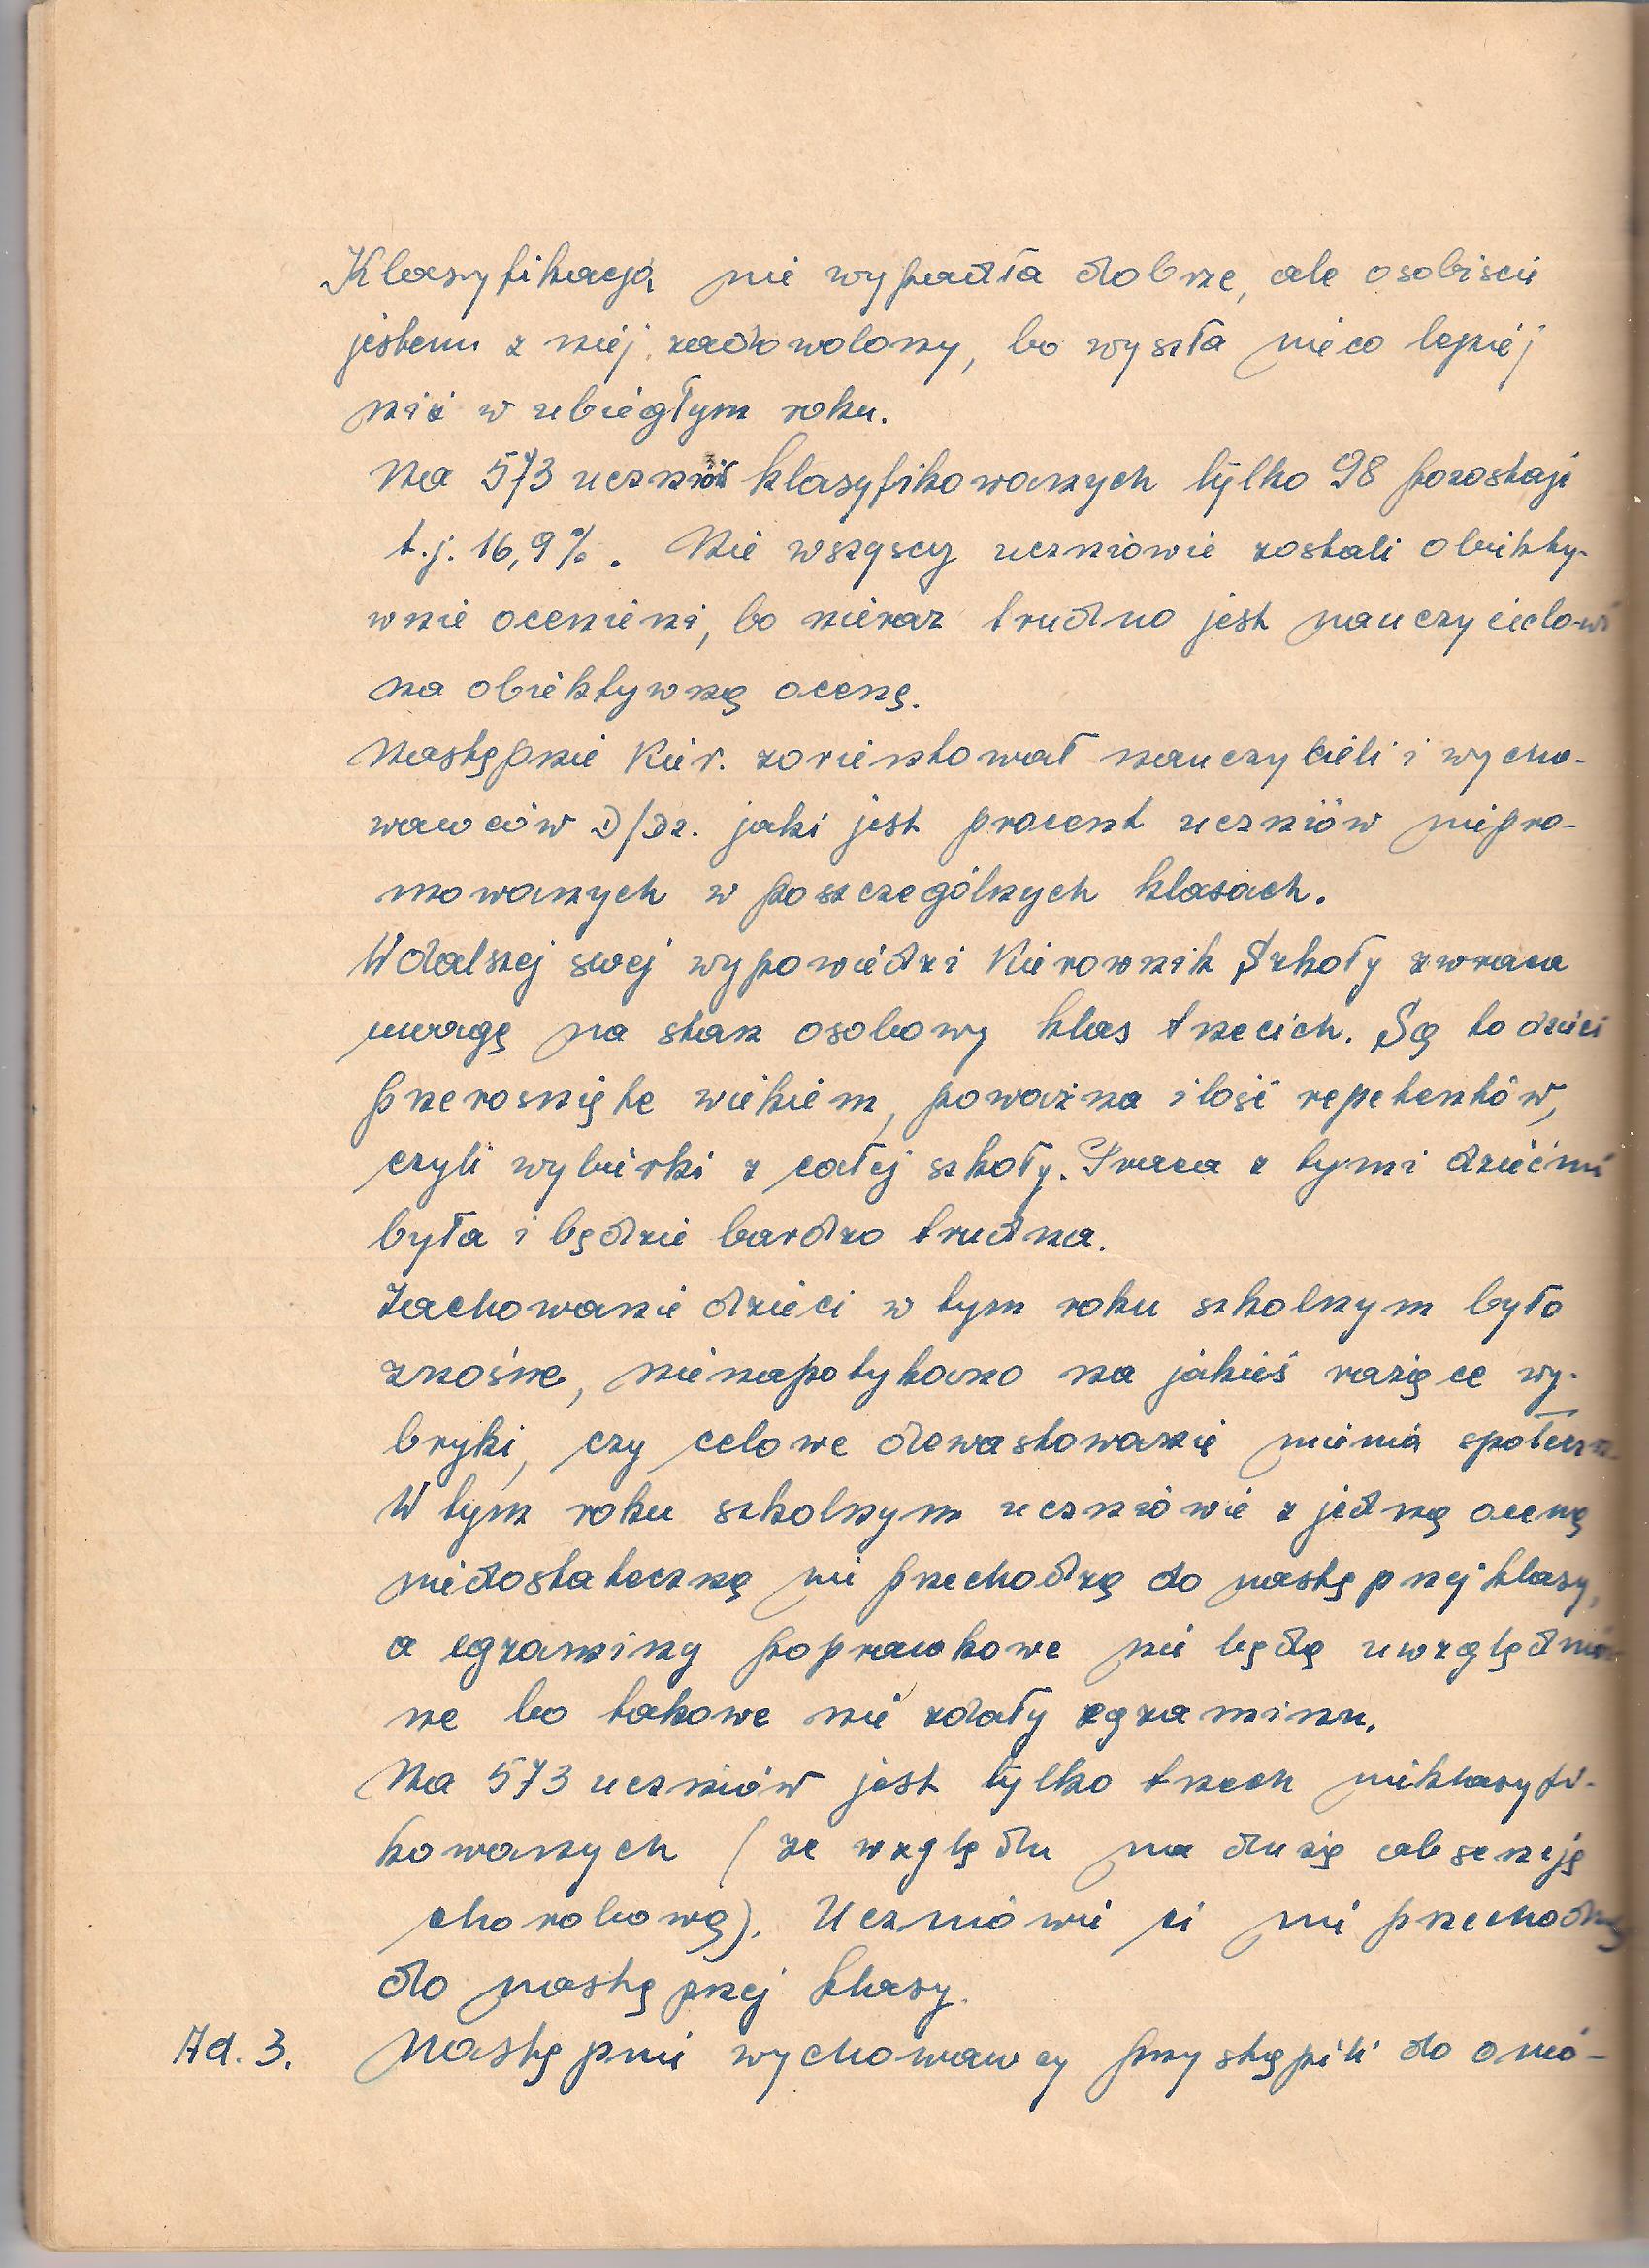 Klasyfikacja nie wypadła dobrze, ale osobiście
jestem z niej zadowolony, bo wyszła nieco lepiej
niż w ubiegłym roku.
Na 573 uczniów klasyfikowanych tylko 98 pozostaje
t.j. 16,9%. Nie wszyscy uczniowie zostali obiekty-
wnie ocenieni, bo nieraz trudno jest nauczycielowi
na obiektywną ocenę.
Następnie Kier. zorientował nauczycieli i wycho-
wawców D/Dz. jaki jest procent uczniów niepro-
mowanych w poszczególnych klasach.
W dalszej swej wypowiedzi Kierownik Szkoły zwraca
uwagę na stan osobowy klas trzecich. Są to dzieci
przerośnięte wiekiem, poważna ilość repetentów,
czyli wybierki z całej szkoły. Praca z tymi dziećmi
była i będzie bardzo trudna.
Zachowanie dzieci w tym roku szkolnym było
znośne, nienapotykano na jakieś rażące wy-
bryki, czy celowe dewastowanie mienia społeczn.
W tym roku szkolnym uczniowie z jedną oceną
niedostateczną nie przechodzą do następnej klasy,
a egzaminy poprawkowe nie będą uwzględnia-
ne bo takowe nie zdały egzaminu.
Na 573 uczniów jest tylko trzech nieklasyfi-
kowanych (ze względu na dużą absencję
chorobową). Uczniowie ci nie przechodzą
do następnej klasy.
Ad. 3. Następnie wychowawcy przystąpili do omó-